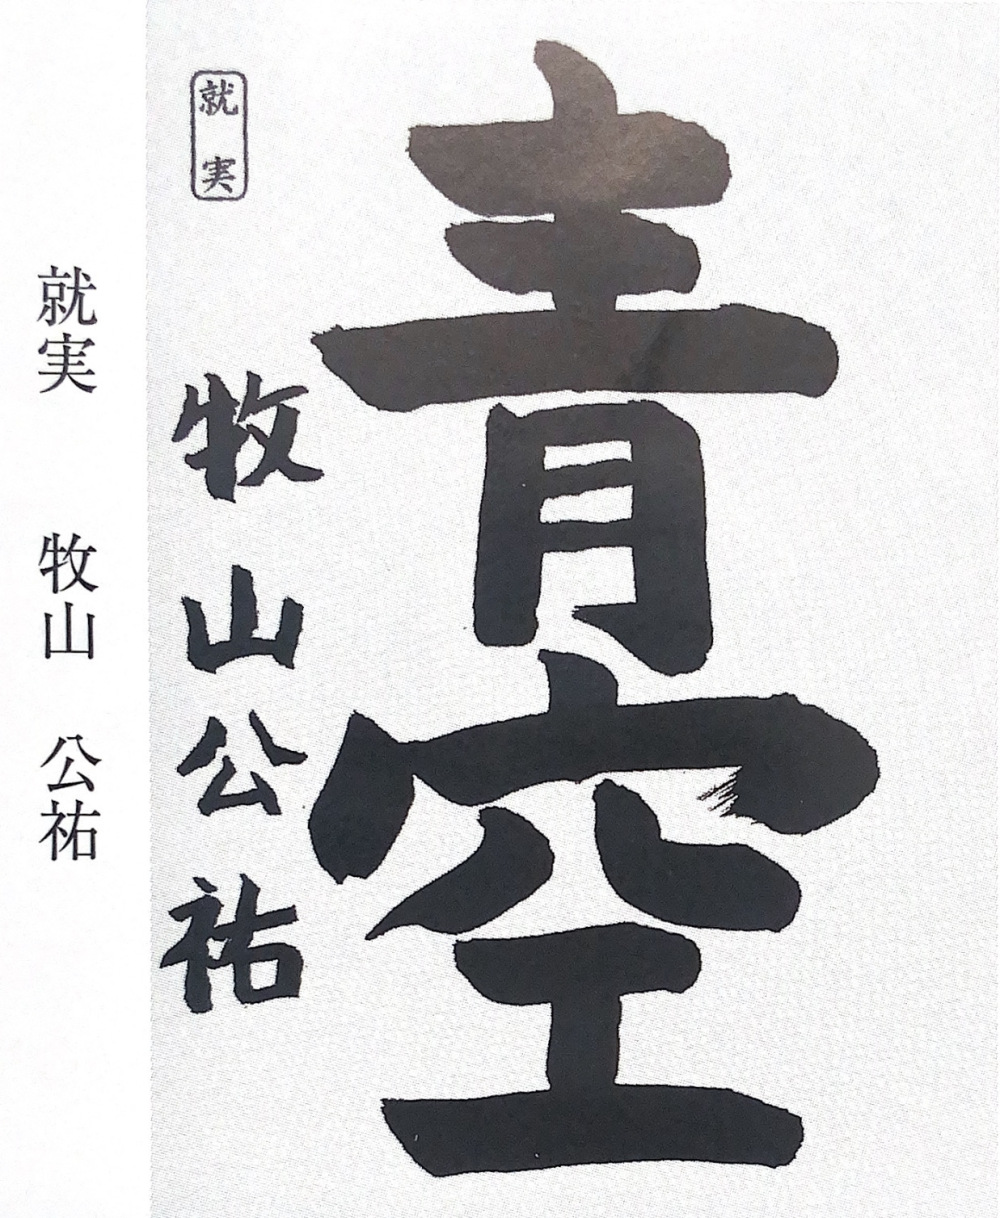 青空
就実
牧山公祐
就実 牧山 公祐